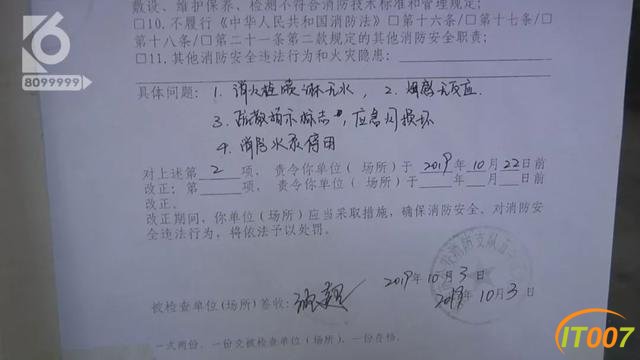 数设、维护保养、检测不符合消防技术标准和管理规定;
□10.不履行《中华人民共和国消防法》□第十六条/□第十七条/□
第十八条/□第二十一条第二款规定的其他消防安全职责;
□11.其他消防安全违法行为和火灾隐患:
6
8099999
具体问题: 1. 消火栓喷淋无水, 2. 烟感无反应.
3. 疏散指示标志, 应急灯损坏
4. 消防水泵停用
对上述第 2 项,责令你单位(场所)于 2019 年 10 月 22 日前
改正;第 项,责令你单位(场所)于 年 月 日前
改正。
改正期间,你单位(场所)应当采取措施,确保消防安全。对消防安
全违法行为,将依法予以处罚。
消防支队
2019 年 10 月 3 日
被检查单位(场所)签收:
2019 年 10 月 3 日
一式两份,一份交被检查单位(场所),一份存档。
IT007